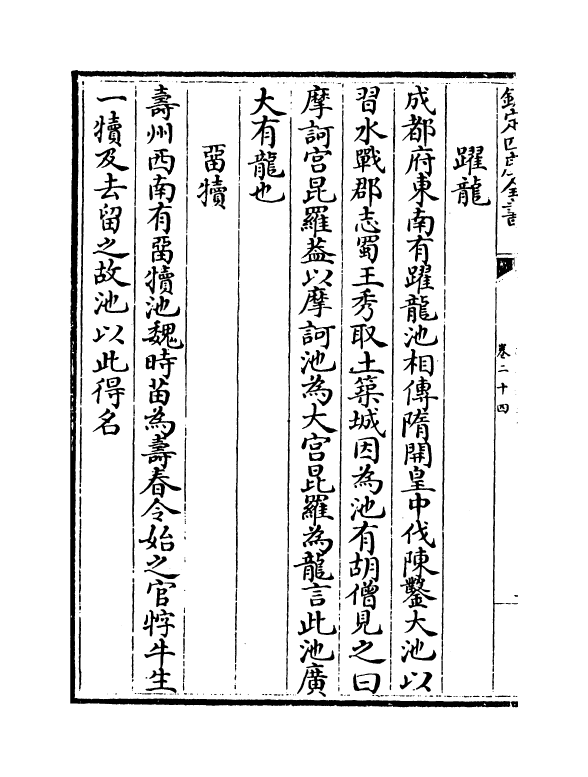 欽定四庫全書
卷二十四
躍龍
成都府東南有躍龍池相傳隋開皇中伐陳鑿大池以
習水戰郡志蜀王秀取土築城因為池有胡僧見之曰
摩訶宫毘羅葢以摩訶池為大宫毘羅為龍言此池廣
大有龍也
畱犢
壽州西南有畱犢池魏時苗為壽春令始之官牸牛生
一犢及去留之故池以此得名